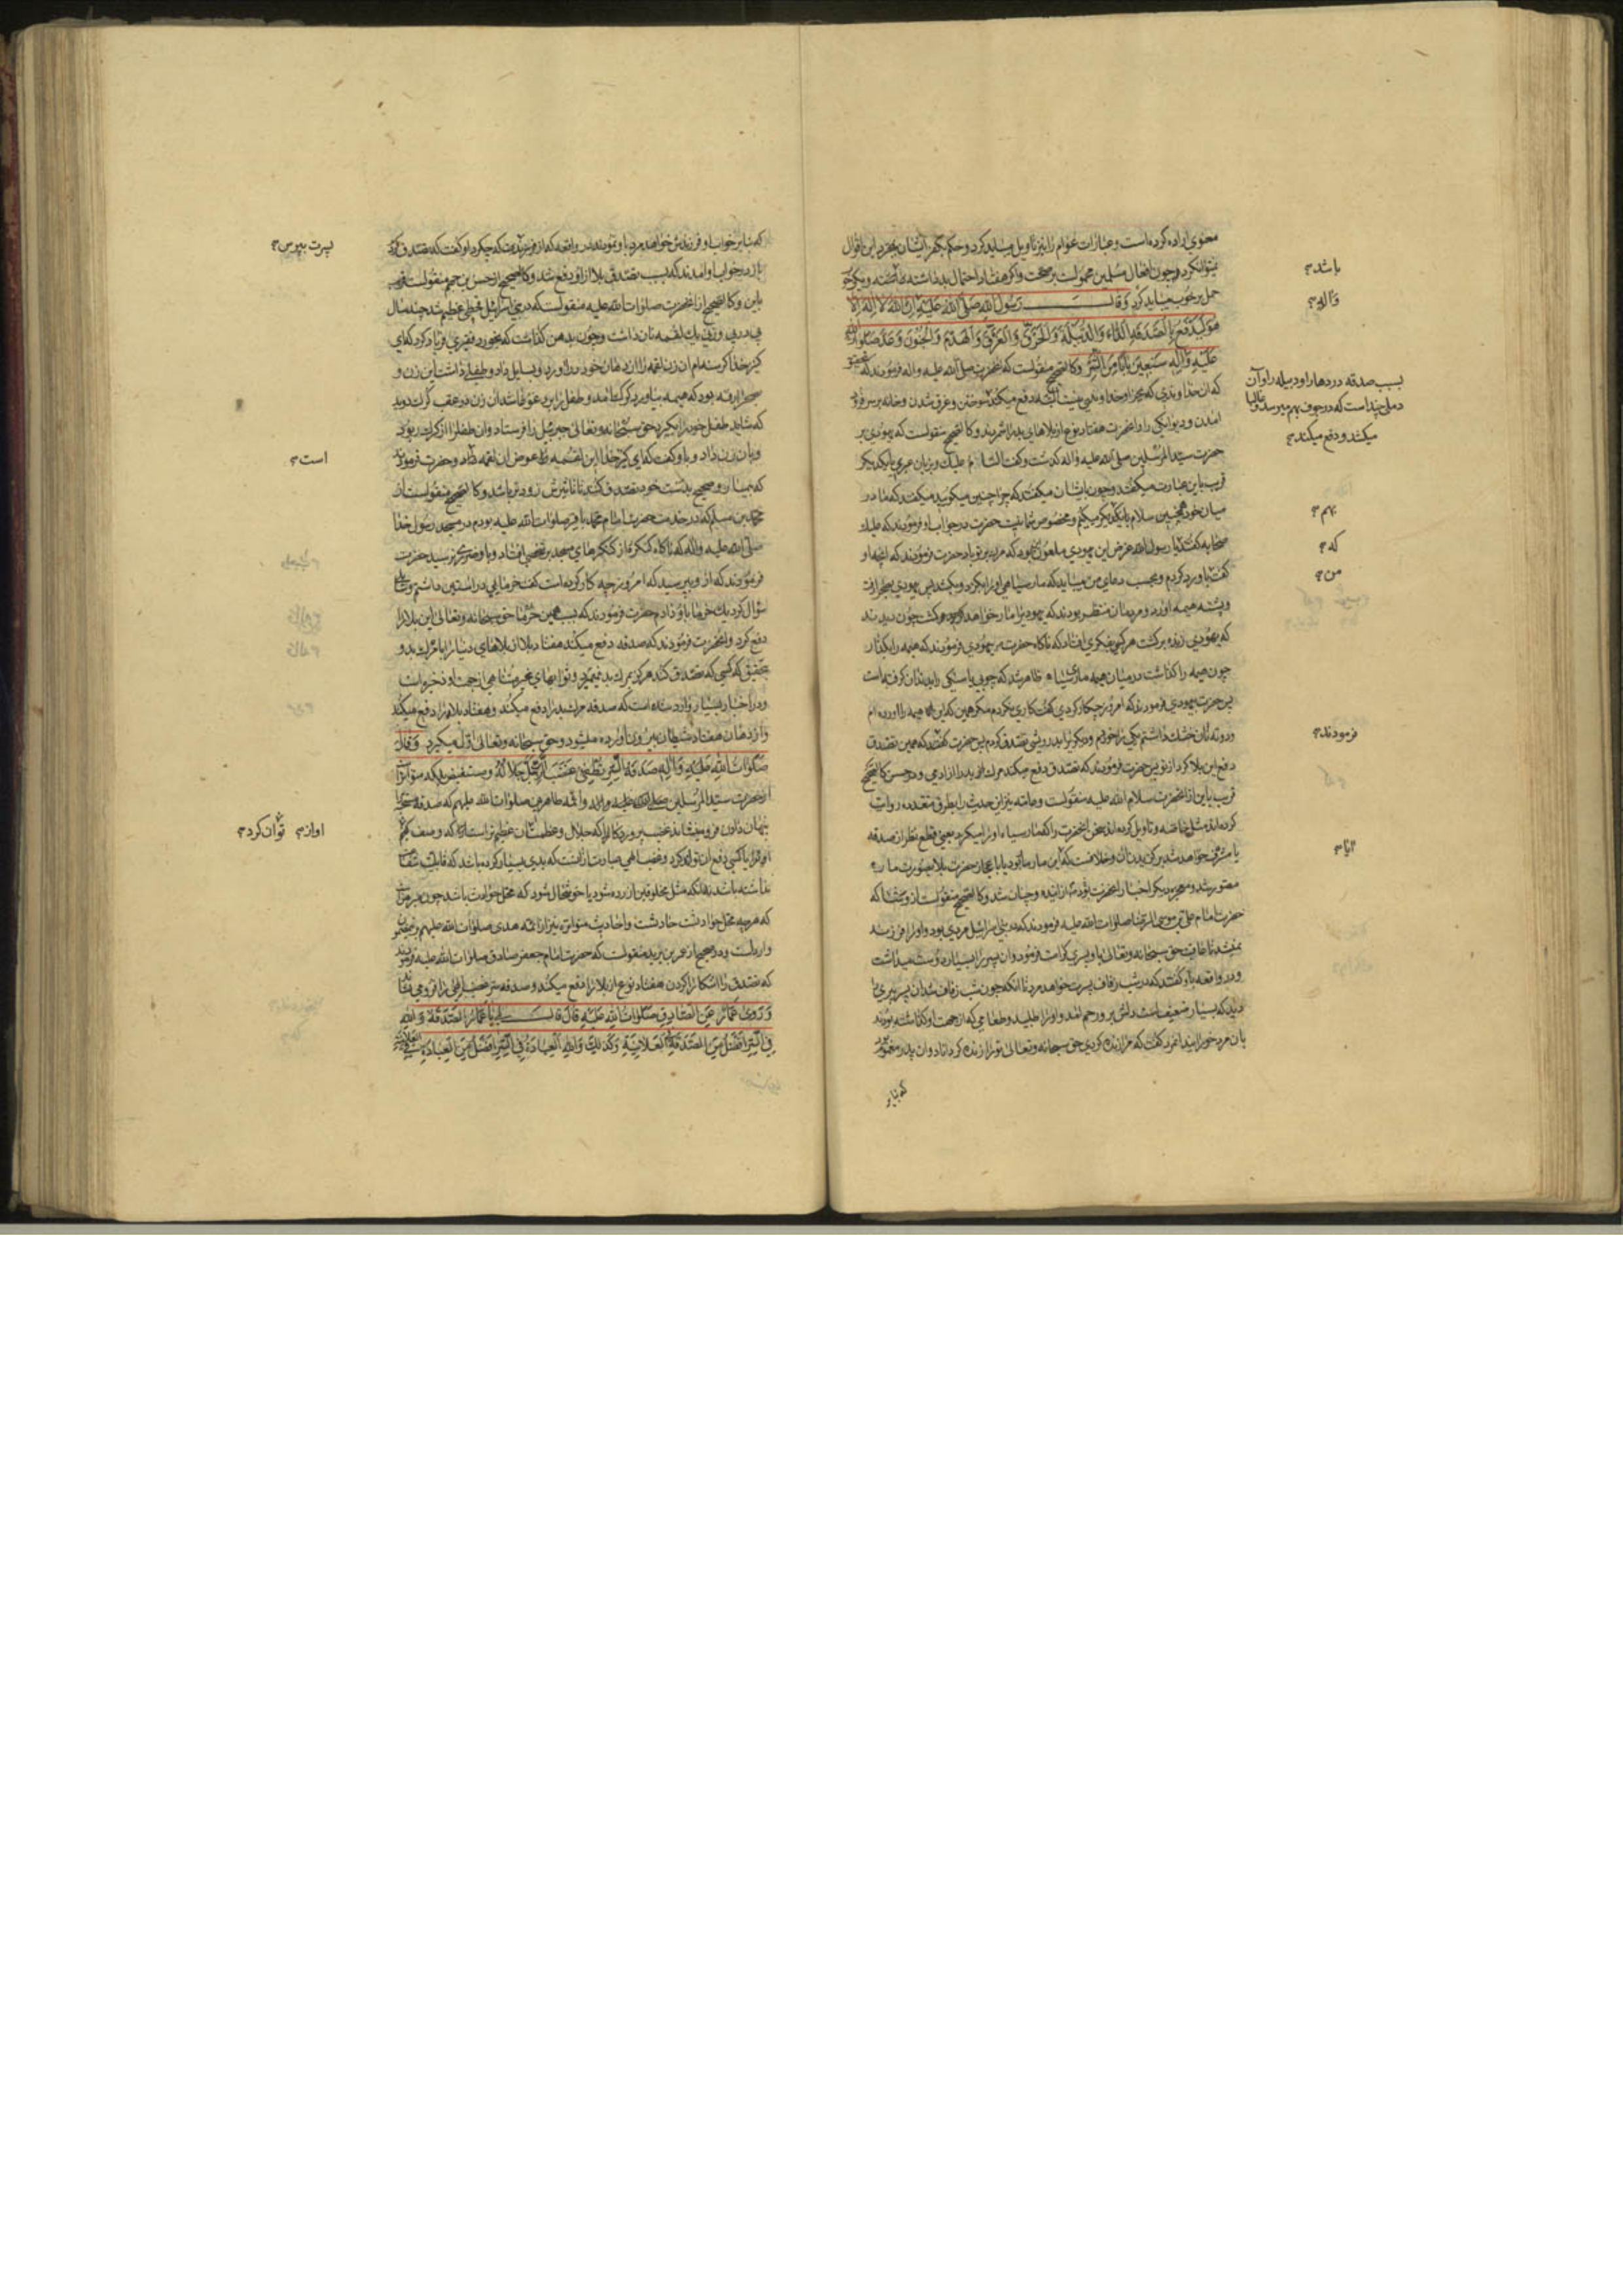 معنوی اراده کرده است و عبارات عوام را نیز تاویل میباید کرد و حکم بکفر ایشان بمجرد این اقوال
نمیتوان کرد و چون افعال مسلمین محمولست بر صحت و اگر هفتاد احتمال بد داشته باشد و یکی خوب
حمل بر خوب میباید کرد وَقالَ رَسُولُ اللهِ صَلَّی اللهُ عَلَیْهِ اِنَّ اللهَ لا اِلهَ اِلّا
هُوَ لَیَدْفَعُ بِالصَّدَقَةِ الدّاءَ وَالدُّبَیْلَةَ وَالْحَرَقَ وَالْغَرَقَ وَالْهَدْمَ وَالْجُنُونَ وَعَدَّ صَلَواتُ اللهِ
عَلَیْهِ وَآلِهِ سَبْعِینَ بابًا مِنَ الشَّرِّ و کالصحیح منقولست که آنحضرت صلی الله علیه و اله فرمودند که بتحقیق
که آن خداوندی که بجز او خداوندی نیست البته دفع میکند سوختن و غرق شدن و خانه بر سر فرود
آمدن و دیوانگی را و آنحضرت هفتاد نوع از بلاهای بد را شمردند و کالصحیح منقولست که یهودی بر
حضرت سید المرسلین صلی الله علیه و اله گذشت و گفت السام علیک و بزبان عبری با یکدیگر
قریب باین عبارت میگفتند و چون بایشان میگفتند که چرا چنین میگوئید میگفتند که ما در
میان خود همچنین سلام با یکدیگر میکنیم و مخصوص شما نیست حضرت در جواب او فرمودند که علیک
صحابه گفتند یا رسول الله غرض این یهودی ملعون این بود که مرگ بر تو باد حضرت فرمودند که آنچه او
گفت باو رد کردم و بسبب دعای من میباید که مار سیاهی او را بگزد و بکشد پس یهودی بصحرا رفت
و پشته هیمه آورد و مردمان منتظر بودند که یهودی را مار خواهد کشت چون دیدند
که یهودی زنده برگشت هر کس بفکری افتاد که ناگاه حضرت بیهودی فرمودند که هیمه را بگذار
چون هیمه را گذاشت در میان هیمه مار سیاه ظاهر شد که چوبی یا سنگی را بدندان گرفته است
پس حضرت بیهودی فرمودند که امروز چکار کردی گفت کاری نکردم مگر همین که این هیمه را آوردم
و دو ته نان خشک داشتم یکی را خوردم و دیگری را بدرویشی تصدق کردم پس حضرت گفتند که همین تصدق
دفع این بلا کرد از تو پس حضرت فرمودند که تصدق دفع میکند مرگ بد را از آدمی و در حسن کالصحیح
قریب باین از آنحضرت سلام الله علیه منقولست و عامه نیز این حدیث را بطرق متعدده روایت
کرده اند مثل خاصه
حضرت امام علی بن موسی الرضا صلوات الله علیه فرمودند که در بنی اسرائیل مردی بود و او را فرزند
نمیشد تا عاقبت حق سبحانه و تعالی باو پسری کرامت فرمود و آن پسر را بسیار دوست میداشت
و در واقعه باو گفتند که در شب زفاف پسرت خواهد مرد تا آنکه چون شب زفاف شد آن پسر پیری را
دید که بسیار ضعیف است دلش برو رحم آمد و او را طلبید و طعامی که از جهت او گذاشته بودند
بان مرد خورانید آنمرد گفت که مرا زنده کردی حق سبحانه و تعالی ترا زنده گرداناد و آن پدر مغموم بود
که بنابر
باشد
و آله
بسبب صدقه دردها را و دبیله را و آن
دملی چند است که در جوف بهم میرسد و غالبا
میکشد و دفع میکند
بهم
که
من
فرمودند
آیا
که بنابر خواب او فرزندش خواهد مرد باو نمودند در واقعه که از فرزندت بپرس که چکرد او گفت که تصدق کرد
باز در خواب او آمدند که بسبب تصدق بلا از او دفع شد و کالصحیح از حسن بن جهم منقولست قریب
باین و کالصحیح از آنحضرت صلوات الله علیه منقولست که در بنی اسرائیل قحطی عظیم شد چند سال
پی در پی و زنی یک لقمه نان داشت و چون بدهن گذاشت که بخورد فقیری فریاد کرد که ای
کنیز خدا گرسنه ام آن زن لقمه را از دهان خود بدر آورد و بسایل داد و طفلی داشت این زن و
بصحرا رفته بود که هیمه بیاورد گرگ آمد و طفل را برد غوغا شد آن زن در عقب گرگ دوید
که شاید طفل خود را بگیرد حق سبحانه و تعالی جبرئیل را فرستاد و آن طفل را از گرگ ربود
و بان زن داد و باو گفت که ای کنیز خدا این لقمه بعوض آن لقمه که داد و حضرت فرمودند
که بیمار و صحیح بدست خود تصدق کنند تا تاثیرش زودتر باشد و کالصحیح منقولست از
محمد بن مسلم که در خدمت حضرت امام محمد باقر صلوات الله علیه بودم در مسجد رسول خدا
صلی الله علیه و اله که ناگاه کنگره از کنگرهای مسجد بر شخصی افتاد و باو ضرری نرسید حضرت
فرمودند که از و بپرسید که امروز چه کار کرده است گفت خرمایی در آستین داشتم و سائلی
سؤال کرد یک خرما باو دادم حضرت فرمودند که بسبب همین خرما حق سبحانه و تعالی این بلا را
دفع کرد و آنحضرت فرمودند که صدقه دفع میکند هفتاد بلا از بلاهای دنیا را با مرگ بد و
بتحقیق که کسی که تصدق کند هرگز بمرگ بد نمیمیرد و ثوابهای غیر متناهی از جهت او ذخیره است
و در اخبار بسیار وارد شده است که صدقه مرگ بد را دفع میکند و هفتاد بلا را دفع میکند
و از دهان هفتاد شیطان بیرون آورده میشود و حق سبحانه و تعالی اول میگیرد وَقالَ
صَلَواتُ اللهِ عَلَیْهِ وَآلِهِ صَدَقَةُ السِّرِّ تُطْفِئُ غَضَبَ الرَّبِّ جَلَّ جَلالُهُ و مستفیض بلکه متواتر است
از حضرت سید المرسلین صلی الله علیه و اله و ائمه طاهرین صلوات الله علیهم که صدقه
پنهان دادن فرو مینشاند غضب پروردگار را که جلال و عظمت شان عظیم تر است که وصف کنم
نداشته باشد نه آنکه مثل مخلوقین آزرده شود یا خوشحال شود که محل حوادث باشد چون مبرهن است
که هر چه محل حوادثست حادثست و احادیث متواتره نیز از ائمه هدی صلوات الله علیهم
وارد است و در صحیح از عمر بن یزید منقولست که حضرت امام جعفر صادق صلوات الله علیه فرمودند
که تصدق را آشکارا کردن هفتاد نوع از بلا را دفع میکند و صدقه سر غضب الهی را فرو می نشاند
وَرَوی عَمّارٌ عَنِ الصّادِقِ صَلَواتُ اللهِ عَلَیْهِ قالَ قالَ لِی یا عَمّارُ الصَّدَقَةُ وَاللهِ
فِی السِّرِّ اَفْضَلُ مِنَ الصَّدَقَةِ فِی الْعَلانِیَةِ وَکَذلِکَ وَاللهِ الْعِبادَةُ فِی السِّرِّ اَفْضَلُ مِنَ الْعِبادَةِ فِی العَلانِیَةِ
پسرت بپرس
است
او از
توان کرد